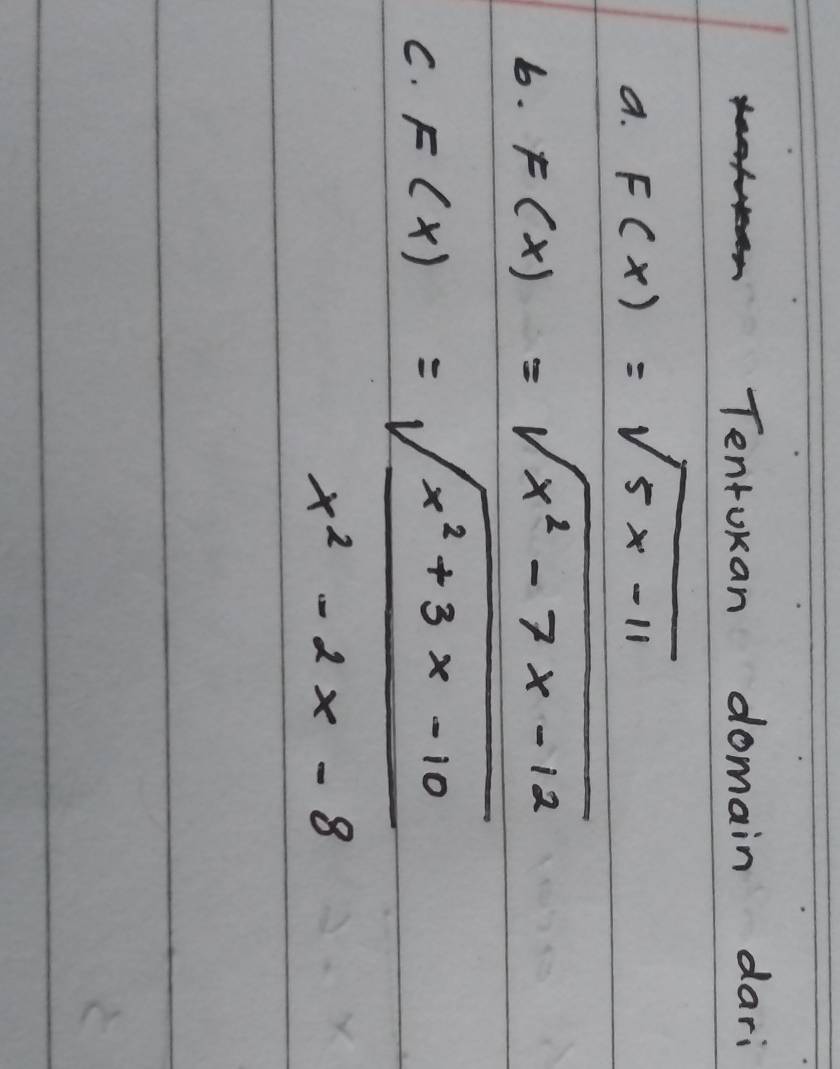 Tentukan domain dari
a. F(x) = √5x - 11
b. F(x) = √x² - 7x - 12
c. F(x) = √x² + 3x - 10
x² - 2x - 8